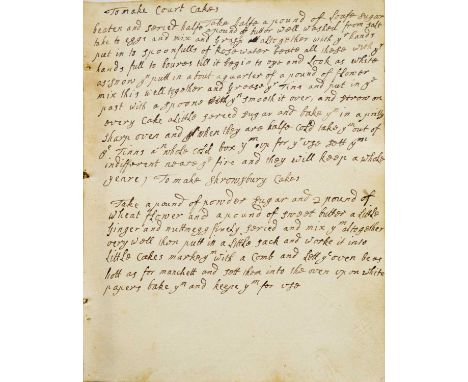 To make Court Cakes
Take halfe a pound of Loafe sugar
beaten and serced halfe a pound of butter well washed from salt
take 6 eggs and mix and brush altogether with yr hands
put in to spoonfulls of Rosewater beate all these with yr
hands full to houres till it begin to rye and Look as white
as snow yn put in about a quarter of a pound of flower
mix this well together and greese yr Tins and put in ye
past with a spoone smooth it over, and strow on
every Cake a Little serced sugar and bake ym in a pritty
sharp oven and when they are halfe Cold take ym out of
ye Tinns a whole Cold box ym up for yr use sett yme
indifferent neare ye fire and they will keep a whole
yeare; To make Shrowsbury Cakes
Take a pound of powder sugar and 2 pound of
wheat flower and a pound of sweet butter a Little
Ginger and nuttmegg finely serced and mix ym altogether
very well then putt in a Little sack and worke it into
Little Cakes marke ym with a Comb and Lett ye oven be as
hott as for manchett and sett them into the oven upon white
papers bake ym and keepe ym for use